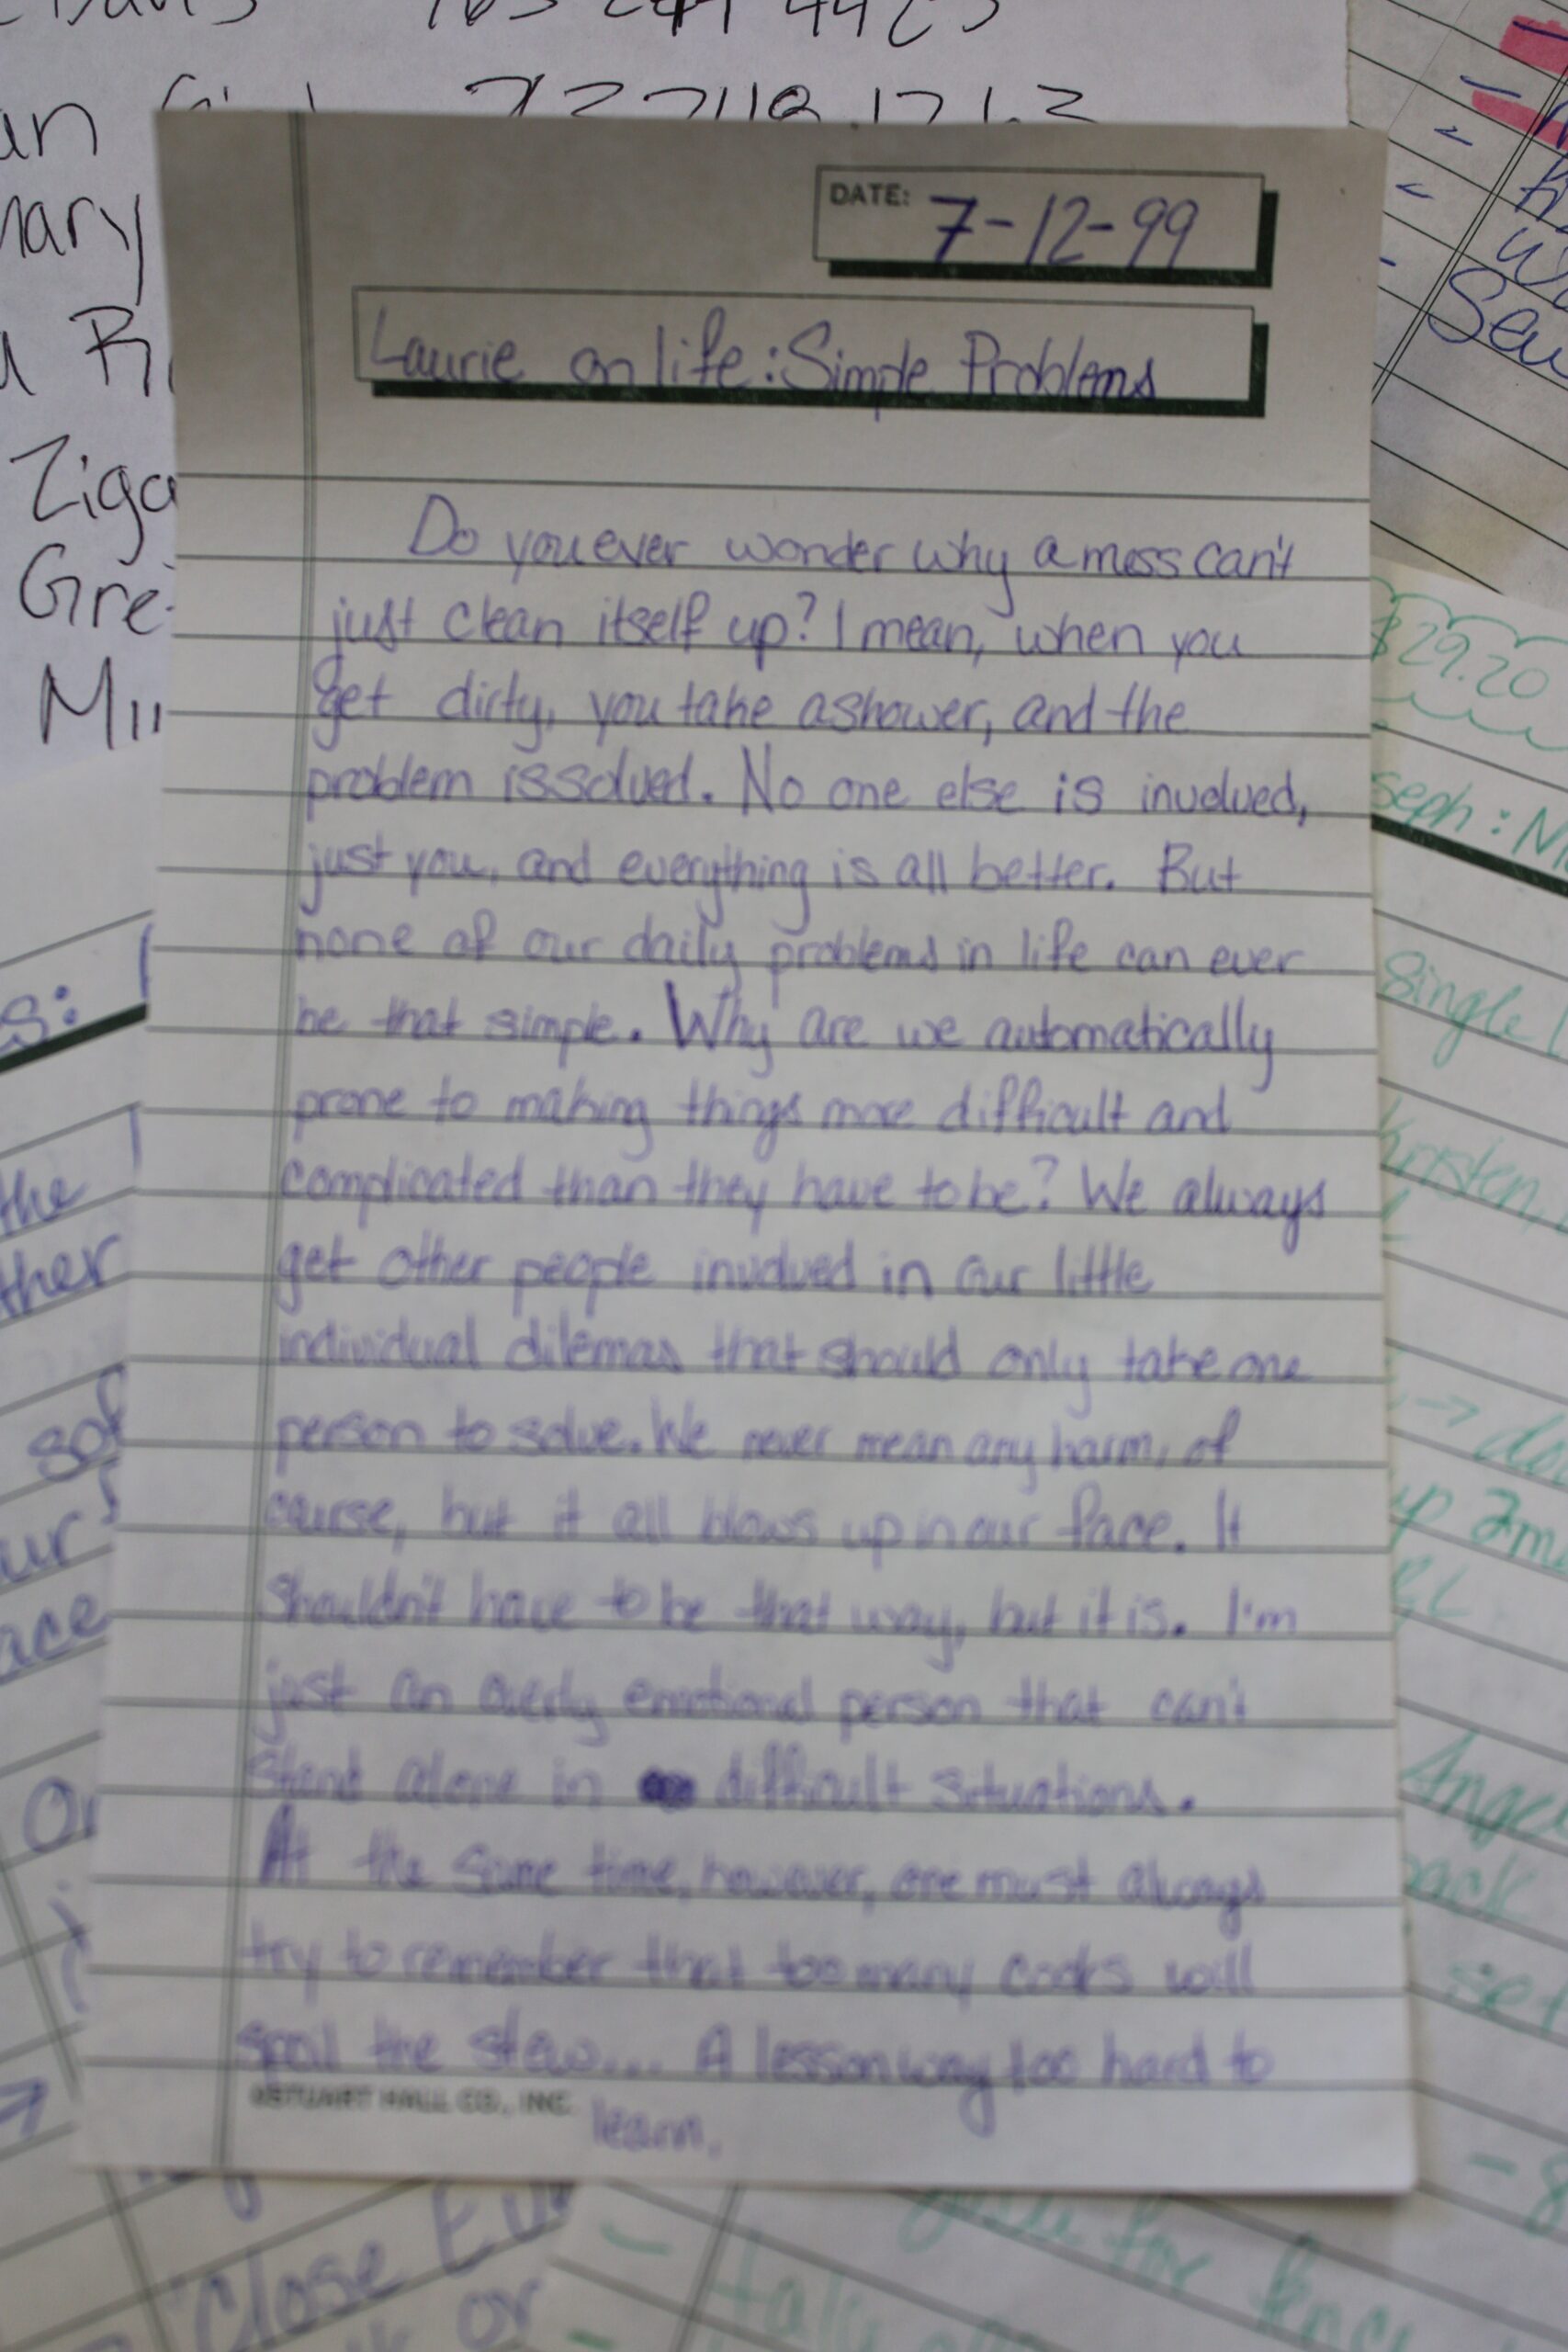 DATE: 7-12-99
Laurie on life: Simple Problems
Do you ever wonder why a mess can't
just clean itself up? I mean, when you
get dirty, you take a shower, and the
problem is solved. No one else is involved,
just you, and everything is all better. But
none of our daily problems in life can ever
be that simple. Why are we automatically
prone to making things more difficult and
complicated than they have to be? We always
get other people involved in our little
individual dilemas that should only take one
person to solve. We never mean any harm, of
course, but it all blows up in our face. It
shouldn't have to be that way, but it is. I'm
just an overly emotional person that can't
stand alone in difficult situations.
At the same time, however, one must always
try to remember that too many cooks will
spoil the stew.... A lesson way too hard to
learn.
©STUART HALL CO., INC.
Ziga
Gre
$29.20
seph:
Single
Kristen,
the
ther
sof
ur
ace
Or
up
Ange
ack
set
Close
or
for